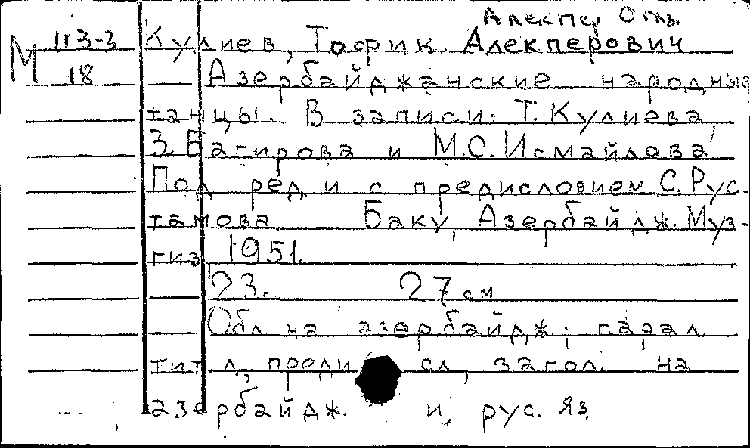 Алекпер Оглы.
М 113-3 Кулиев, Тофик Алекперович
18 Азербайджанские народные
танцы. В записи: Т. Кулиева,
З. Багирова и М.С. Исмайлова
Под ред. и с предисловием С. Рус-
тамова Баку, Азербайдж. Муз-
гиз, 1951.
23. 27 см
Обл. на азербайдж.; парал.
титл, преди сл, загол. на
азербайдж. и рус. яз